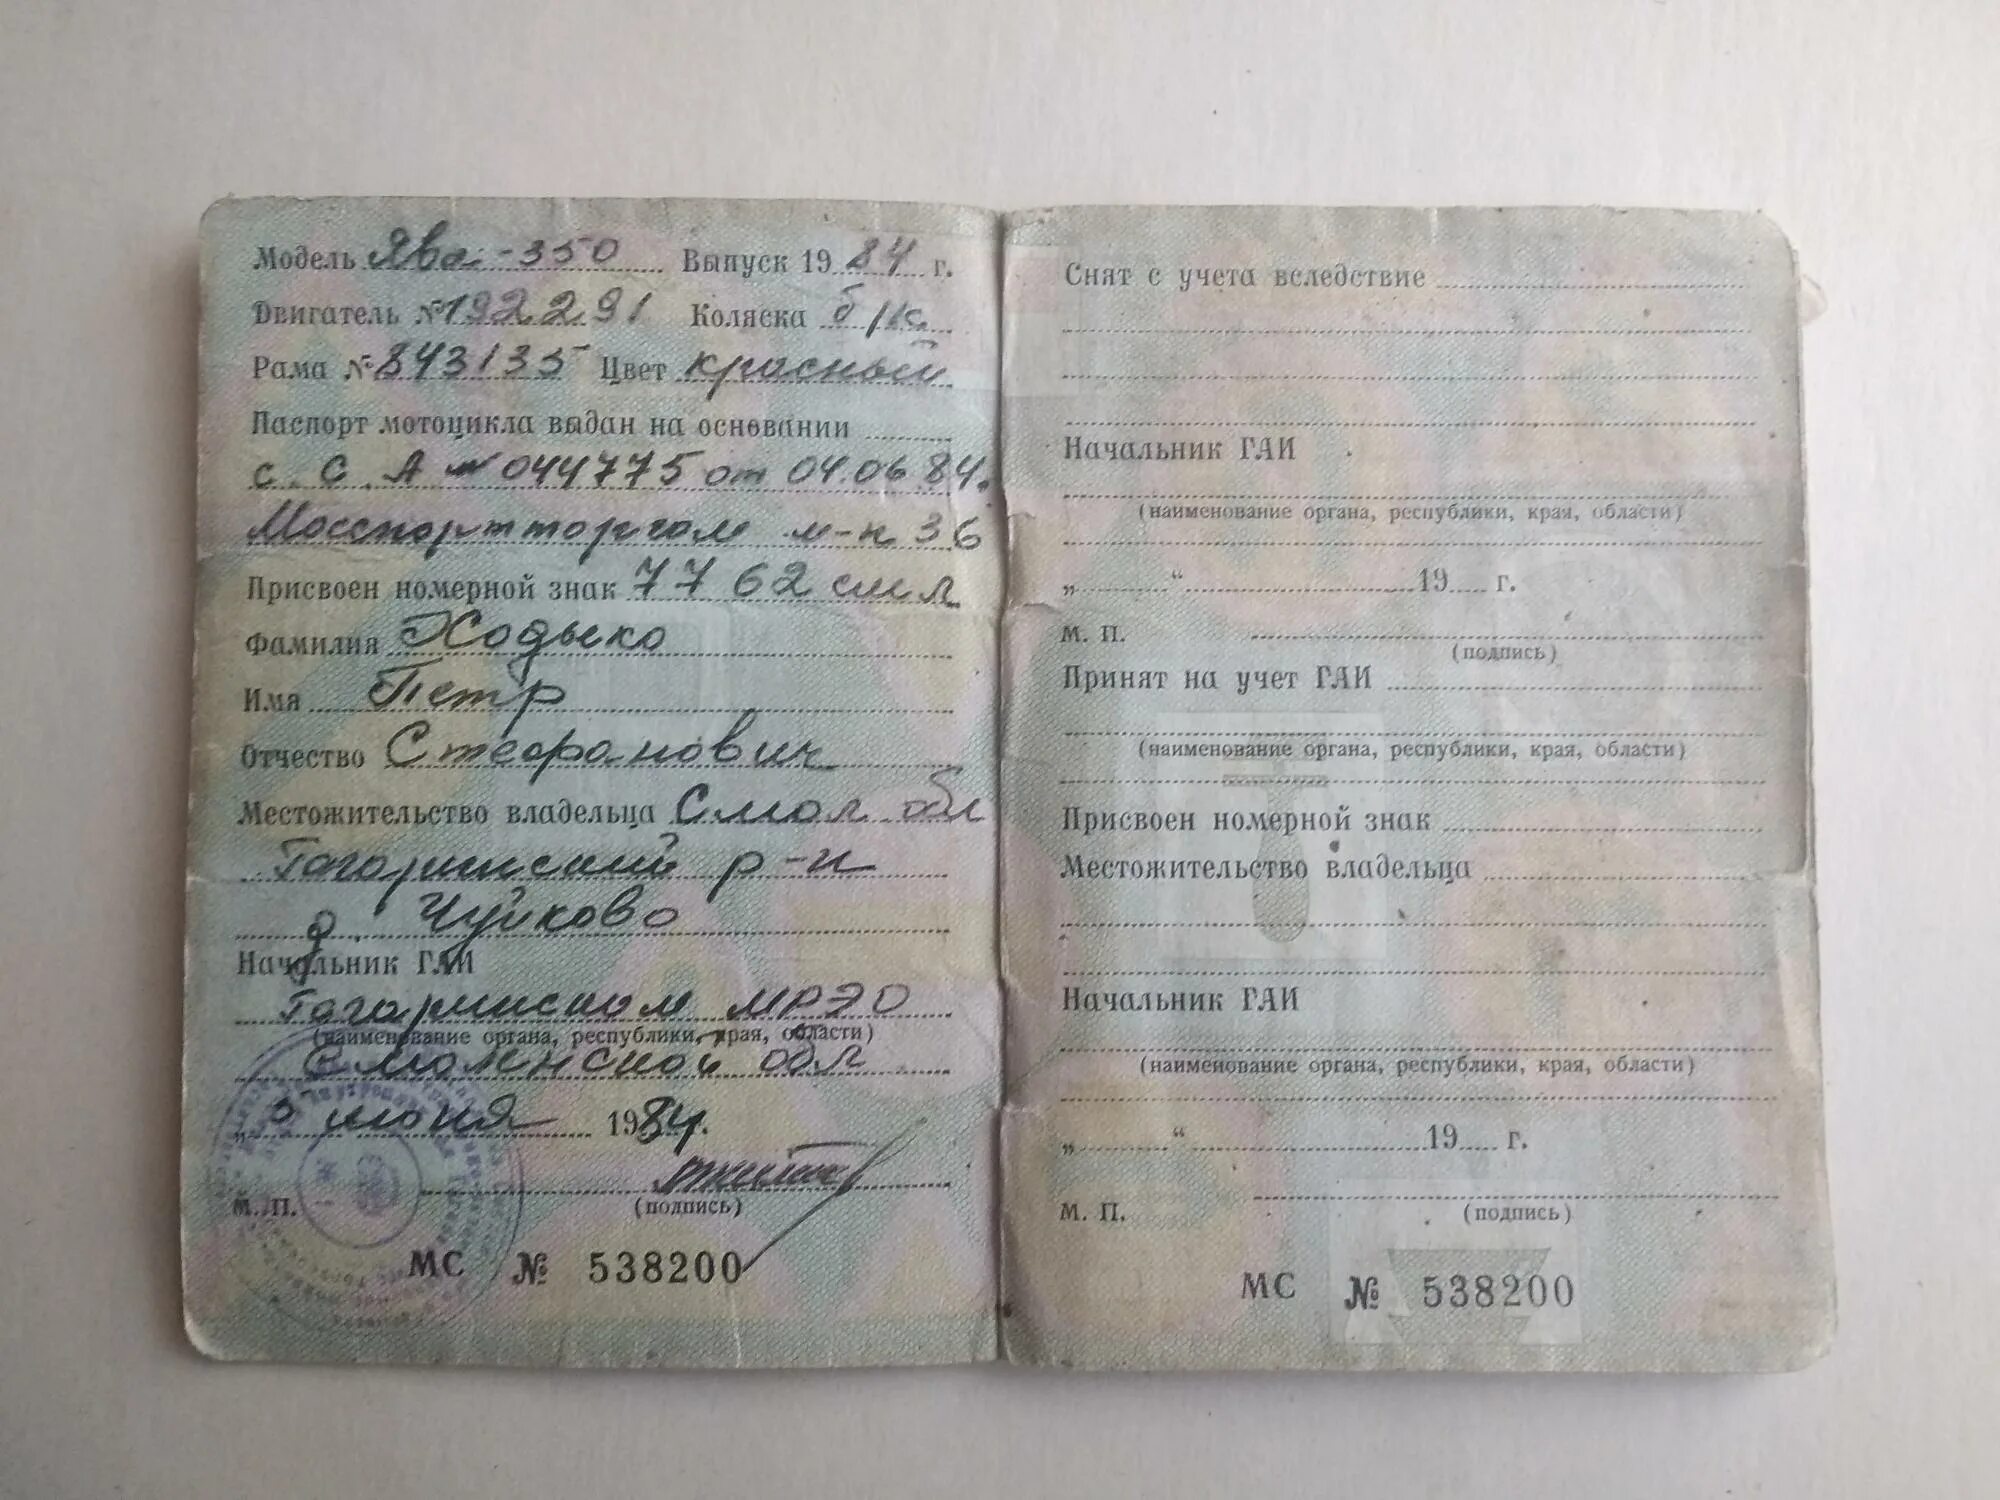 Модель Ява-350 Выпуск 1984 г.
Двигатель № 192291 Коляска б/к.
Рама № 843135 Цвет красный
Паспорт мотоцикла выдан на основании
с. С. А № 044775 от 04.06.84.
Мосспортторгом м-н 36
Присвоен номерной знак 7762 смл
Фамилия Ходыко
Имя Петр
Отчество Стефанович
Местожительство владельца Смол обл
Гагаринский р-н
д. Чуйково
Начальник ГАИ
Гагаринском МРЭО
(наименование органа, республики, края, области)
Смоленской обл
июня 1984г.
М. П.
(подпись)
МС № 538200
Снят с учета вследствие
Начальник ГАИ
(наименование органа, республики, края, области)
„ “ 19 г.
М. П.
(подпись)
Принят на учет ГАИ
(наименование органа, республики, края, области)
Присвоен номерной знак
Местожительство владельца
Начальник ГАИ
(наименование органа, республики, края, области)
„ “ 19 г.
М. П.
(подпись)
МС № 538200